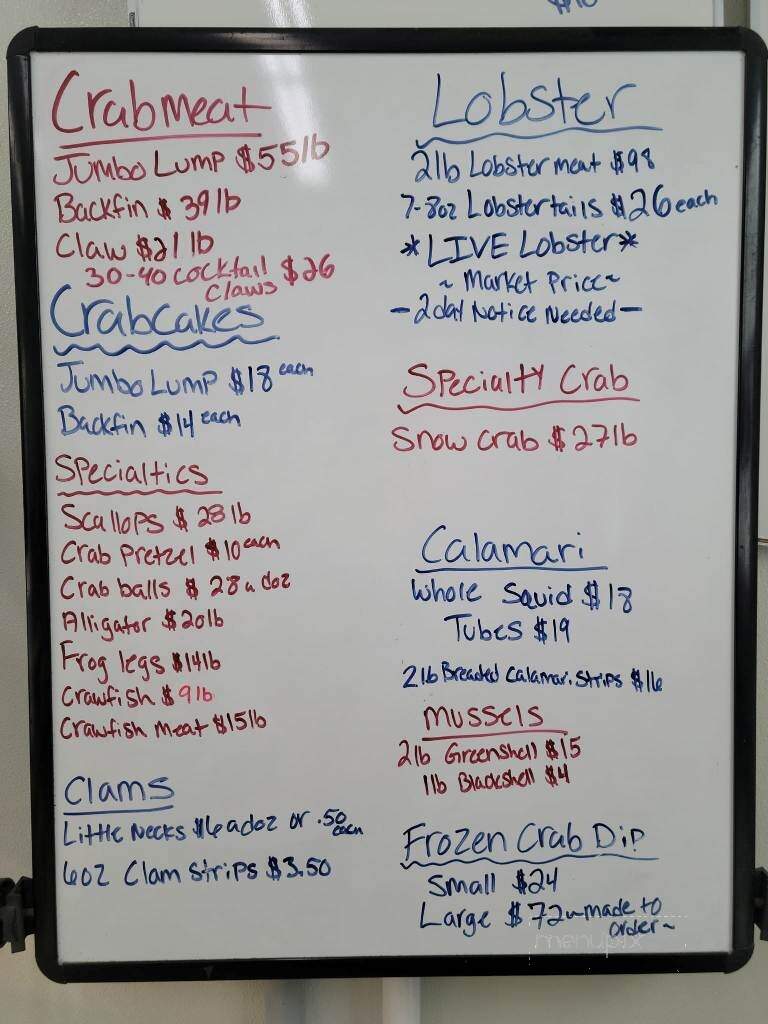 Crabmeat
Jumbo Lump $55lb
Backfin $39lb
Claw $21lb
30-40 cocktail claws $26
Crabcakes
Jumbo Lump $18 each
Backfin $14 each
Specialties
Scallops $28lb
Crab Pretzel $10 each
Crab balls $28 a doz
Alligator $20lb
Frog legs $14lb
Crawfish $9lb
Crawfish meat $15lb
Clams
Little Necks $6 a doz or .50 each
6oz Clam Strips $3.50
Lobster
2lb Lobster meat $98
7-8oz Lobster tails $26 each
*LIVE Lobster*
~ Market Price ~
- 2 day Notice Needed -
Specialty Crab
Snow crab $27lb
Calamari
Whole Squid $18
Tubes $19
2lb Breaded Calamari Strips $16
Mussels
2lb Greenshell $15
1lb Blackshell $4
Frozen Crab Dip
Small $24
Large $72 ~made to order~
menupix